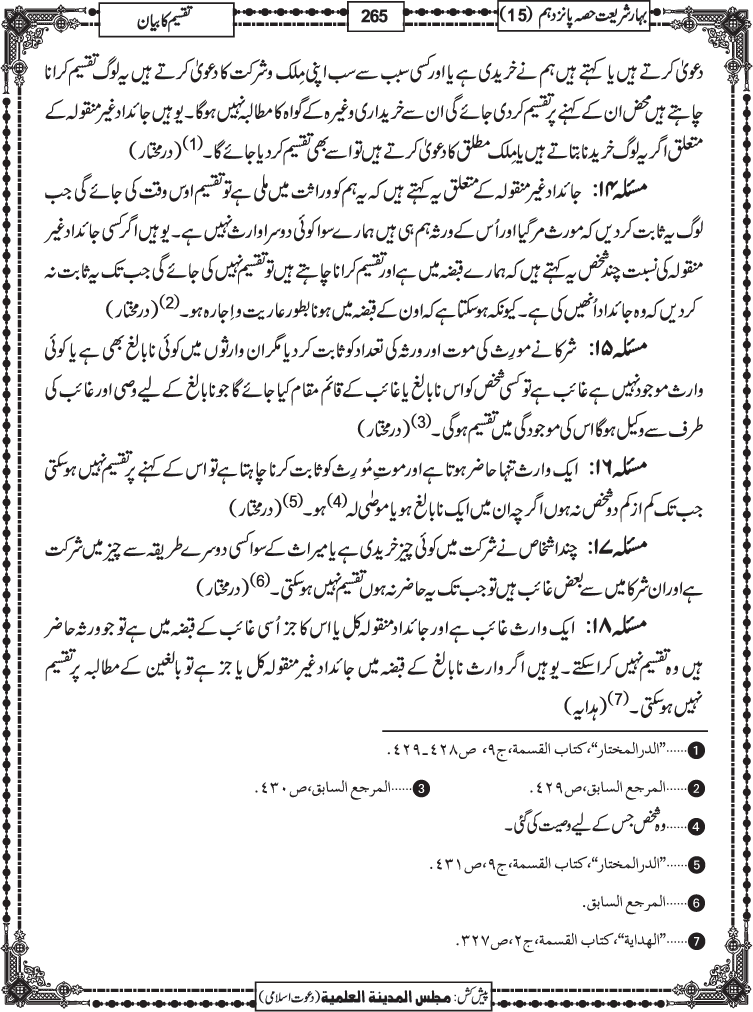 بہارِ شریعت حصہ پانزدہم (15)
265
تقسیم کا بیان
دعویٰ کرتے ہیں یا کہتے ہیں ہم نے خریدی ہے یا اور کسی سبب سے سب اپنی مِلک و شرکت کا دعویٰ کرتے ہیں یہ لوگ تقسیم کرانا
چاہتے ہیں محض ان کے کہنے پر تقسیم کردی جائے گی ان سے خریداری وغیرہ کے گواہ کا مطالبہ نہیں ہوگا۔ یوہیں جائداد غیر منقولہ کے
متعلق اگر یہ لوگ خریدنا بتاتے ہیں یا مِلک مطلق کا دعویٰ کرتے ہیں تو اسے بھی تقسیم کردیا جائے گا۔(1) (درمختار)
مسئلہ ۱۴: جائداد غیر منقولہ کے متعلق یہ کہتے ہیں کہ یہ ہم کو وراثت میں ملی ہے تو تقسیم اوس وقت کی جائے گی جب
لوگ یہ ثابت کردیں کہ مورث مرگیا اور اُس کے ورثہ ہم ہی ہیں ہمارے سوا کوئی دوسرا وارث نہیں ہے۔ یوہیں اگر کسی جائداد غیر
منقولہ کی نسبت چند شخص یہ کہتے ہیں کہ ہمارے قبضہ میں ہے اور تقسیم کرانا چاہتے ہیں تو تقسیم نہیں کی جائے گی جب تک یہ ثابت نہ
کردیں کہ وہ جائداد اُنھیں کی ہے۔ کیونکہ ہوسکتا ہے کہ اون کے قبضہ میں ہونا بطور عاریت و اِجارہ ہو۔(2) (درمختار)
مسئلہ ۱۵: شرکا نے مورِث کی موت اور ورثہ کی تعداد کو ثابت کردیا مگر ان وارثوں میں کوئی نابالغ بھی ہے یا کوئی
وارث موجود نہیں ہے غائب ہے تو کسی شخص کو اس نابالغ یا غائب کے قائم مقام کیا جائے گا جو نابالغ کے لیے وصی اور غائب کی
طرف سے وکیل ہوگا اس کی موجودگی میں تقسیم ہوگی۔(3) (درمختار)
مسئلہ ۱۶: ایک وارث تنہا حاضر ہوتا ہے اور موتِ مُورِث کو ثابت کرنا چاہتا ہے تو اس کے کہنے پر تقسیم نہیں ہوسکتی
جب تک کم از کم دو شخص نہ ہوں اگرچہ ان میں ایک نابالغ ہو یا موصٰی لہ(4) ہو۔(5) (درمختار)
مسئلہ ۱۷: چند اشخاص نے شرکت میں کوئی چیز خریدی ہے یا میراث کے سوا کسی دوسرے طریقہ سے چیز میں شرکت
ہے اور ان شرکا میں سے بعض غائب ہیں تو جب تک یہ حاضر نہ ہوں تقسیم نہیں ہوسکتی۔(6) (درمختار)
مسئلہ ۱۸: ایک وارث غائب ہے اور جائداد منقولہ کل یا اس کا جز اُسی غائب کے قبضہ میں ہے تو جو ورثہ حاضر
ہیں وہ تقسیم نہیں کراسکتے۔ یوہیں اگر وارث نابالغ کے قبضہ میں جائداد غیر منقولہ کل یا جز ہے تو بالغین کے مطالبہ پر تقسیم
نہیں ہوسکتی۔(7) (ہدایہ)
1 ......”الدرالمختار“، کتاب القسمة، ج۹، ص۴۲۸۔۴۲۹.
2 ......المرجع السابق، ص۴۲۹. 3 ......المرجع السابق، ص۴۳۰.
4 ......وہ شخص جس کے لیے وصیت کی گئی۔
5 ......”الدرالمختار“، کتاب القسمة، ج۹، ص۴۳۱.
6 ......المرجع السابق.
7 ......”الهداية“، کتاب القسمة، ج۲، ص۳۲۷.
پیش کش: مجلس المدينة العلمية (دعوت اسلامی)